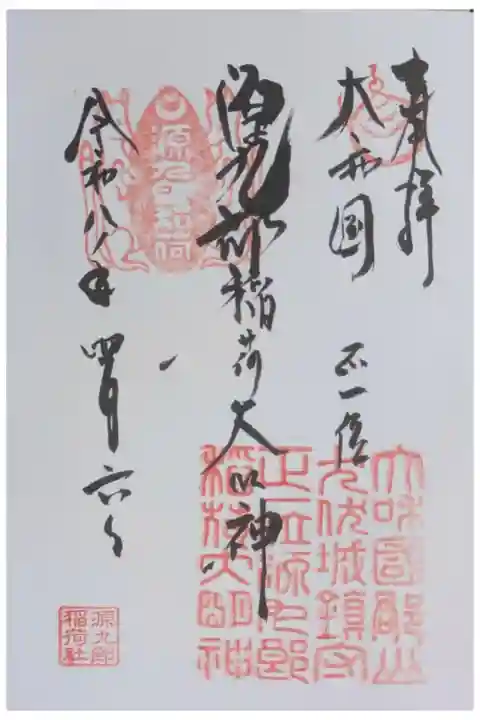 奉拝
大和国 正一位
源九郎稲荷大明神
令和八年四月六日
源九郎稲荷
大和國郡山
城鎮守
正一位源九郎
稲荷大明神
源九郎
稲荷社